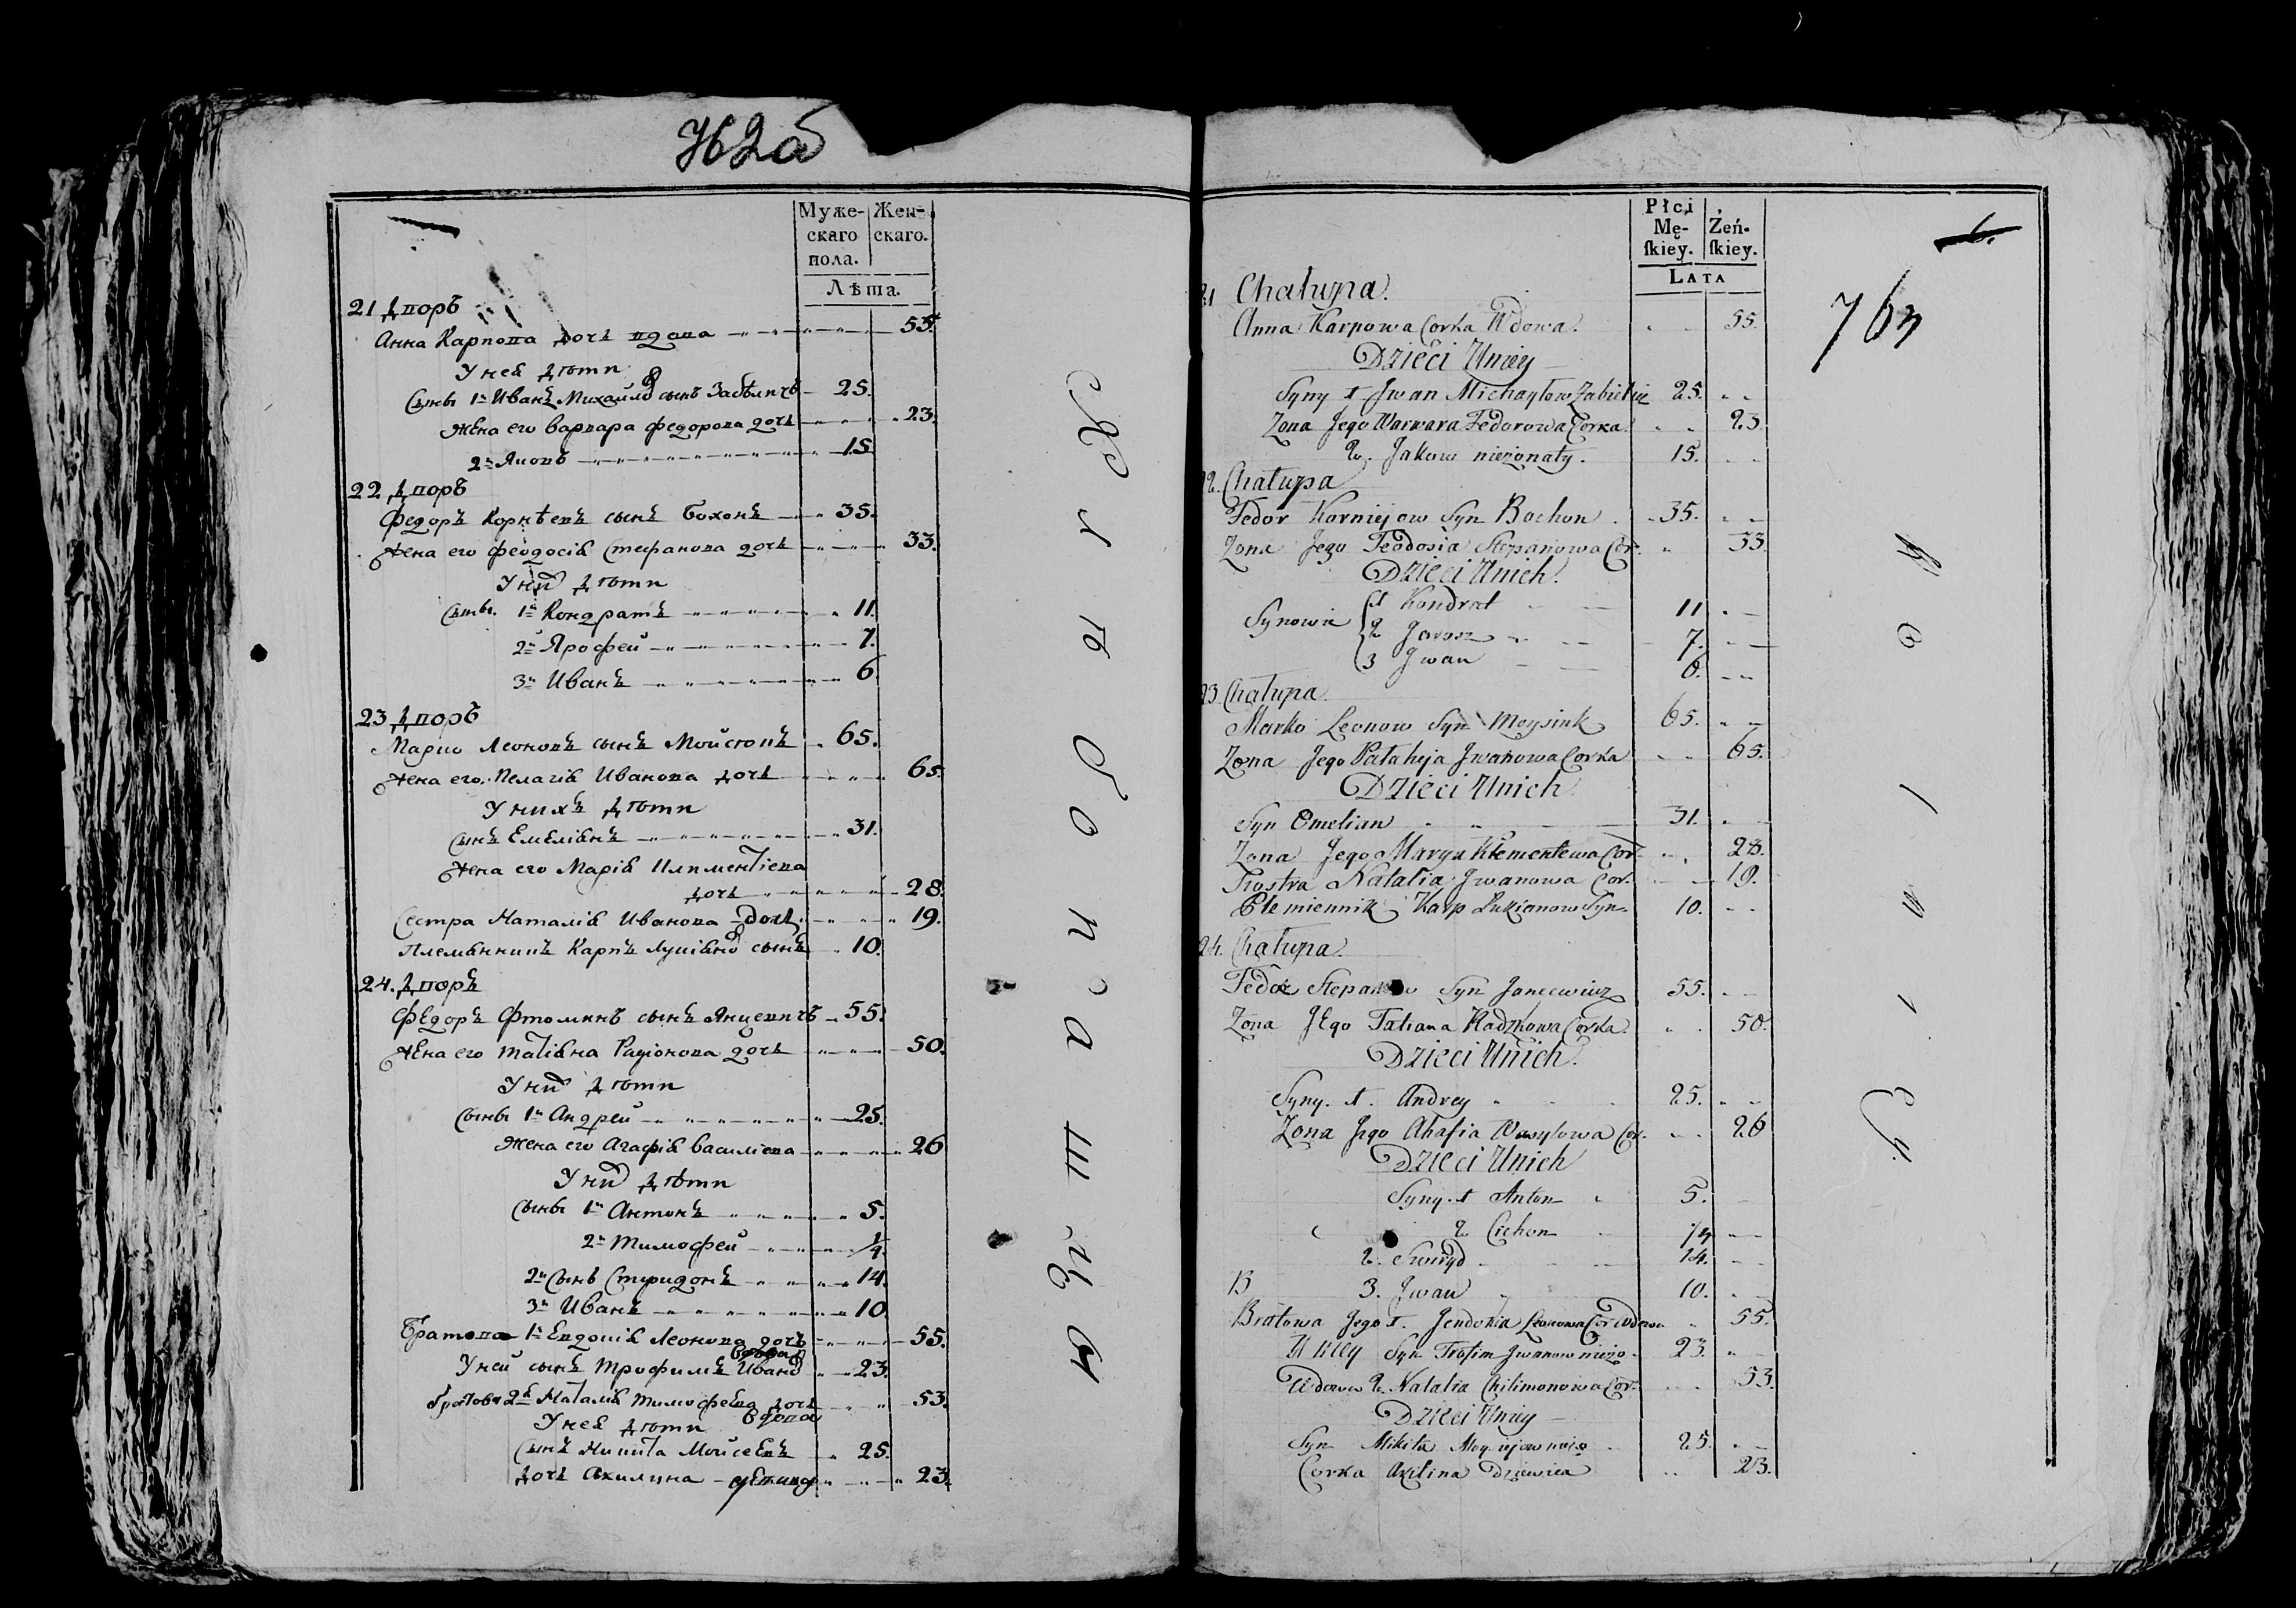 762 об
Муже-
скаго
пола.
Жен-
скаго.
Лѣта.
21 Дворъ
Анна Карпова дочь вдова 55.
У нея дѣти
Сыны 1й Иванъ Михайловъ сынъ Забѣличъ 25.
Жена его Варвара Федорова дочь 23.
2й Яковъ 15
22 Дворъ
Федоръ Корнѣевъ сынъ Бохонъ 35.
Жена его Феодосія Стефанова дочь 33.
У них дѣти
Сыны. 1й Кондратъ 11.
2й Ярофей 7.
3й Иванъ 6
23 Дворъ
Марко Леоновъ сынъ 65.
Жена его Пелагія Иванова дочь 65.
У нихъ дѣти
Сынъ Емеліянъ 31.
Жена его Марія Климентіева
дочь 28.
Сестра Наталія Иванова дочь 19.
Племянникъ Карпъ Лукіянов сынъ 10.
24. Дворъ
Федоръ сынъ Янцевичъ 55.
Жена его Татіяна Радіонова дочь 50.
У них дѣти
Сыны 1й Андрей 25.
Жена его Агафія Василіева 26
У них дѣти
Сыны 1й Антонъ 5.
2й Тимофей 1/4.
2й Сынъ Спиридонъ 14.
3й Иванъ 10.
Братова 1я Евдокія Леонова дочь 55.
вдова
У ней сынъ Трофимъ Иванов 23.
Братова 2я Наталія Тимофеева дочь 53.
вдова
У нея дѣти
Сынъ Никита Мойсеевъ 25.
Дочь Акилина девица 23.
Płci
Mę-
ſkiey.
Żeń-
ſkiey.
LATA
6.
763
21 Chałupa.
Anna Karpowa Corka Wdowa. 55.
Dzieci Uniey
Syny 1 Jwan Michayłow Zabielicz 25.
Zona Jego Warwara Fedorowa Corka. 23
2. Jakow nieżonaty. 15.
22. Chałupa
Fedor Korniejow Syn Bochon 35.
Zona Jego Teodosia Stepanowa Cor. 33.
Dzieci Unich.
Synowie 1 Kondrat 11
2 Jarosz 7.
3 Jwan 6.
23 Chałupa
Marko Leonow Syn Moysiuk 65.
Zona Jego Pałahija Jwanowa Corka 65.
Dzieci Unich
Syn Omelian 31.
Zona Jego Marya Klementewa Cor. 28.
Siostra Natalia Jwanowa Cor. 19.
Plemiennik Karp Łukianow Syn 10.
24. Chałupa.
Fedor Stepanow Syn Jancewicz 55.
Zona Jego Tatiana Corka. 50.
Dzieci Unich.
Syny. 1. Andrey 25.
Zona Jego Ahafia Wasylowa Cor. 26
Dzieci Unich
Syny. 1 Anton 5.
2 Cichon 1/4
2. Swiryd 14.
3. Jwan 10.
Bratowa Jego 1. Jendokia Leonowa Cor Wdowa 55.
U niey Syn Trofim Jwanow nieżo. 23.
Wdowa 2. Natalia Chilimonowa Cor. 53.
Dzieci Uniey
Syn Mikita nieżo 25.
Corka Akilina Dziewica 23.